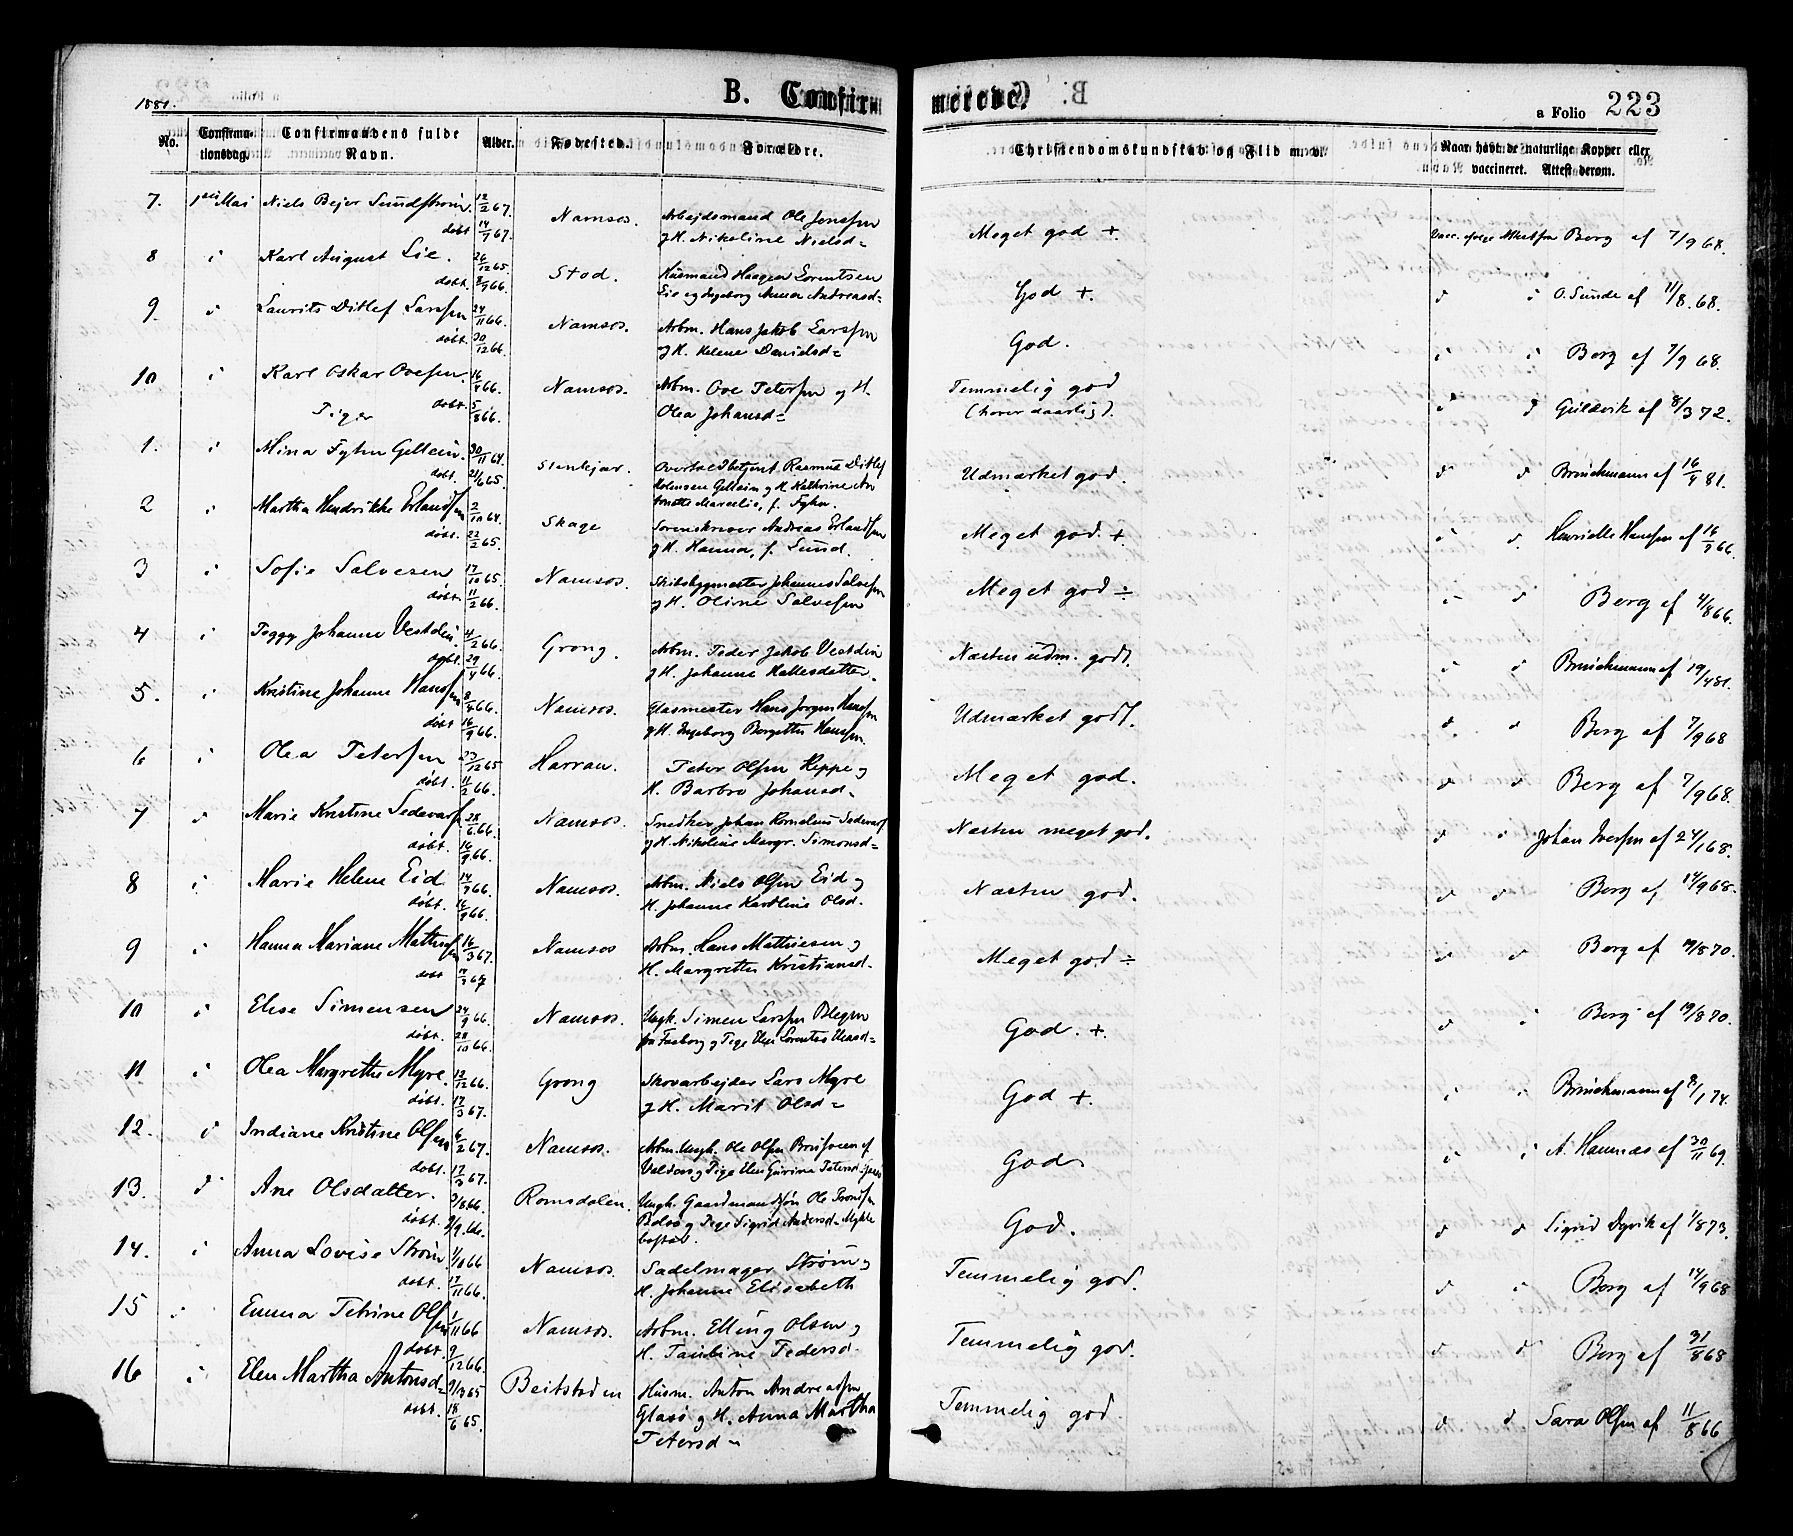 1881.
B. Confirmerede.
a Folio 223
No.
Confirmationsdag.
Confirmandens fulde Navn.
Alder.
Fødested.
Forældre.
Christendomskundskab og Flid m. v.
Naar havt de naturlige Kopper eller vaccineret. Attest derom.
7. 1ste Mai Niels Bejer Sundstrøm. 12/2 67. Namsos. Arbejdsmand Ole Jenssen Meget god +. Berg af 7/9 68.
døbt 14/7 67. og H. Nikoline Nielsd=
8 i Karl August Lie. 26/12 65. Stod. Husmand Haagen Lorentsen God +. d i O. Sunde af 11/8. 68.
døbt. 66. Lie og Ingeborg Anna Andreasd=
9. i Laurits Ditlef Larssen 24/11 66. Namsos. Arbm. Hans Jakob Larssen God. i i Berg af 7/9 68.
døbt. 30/12 66. og H. Helene Danielsd=
10 i Karl Oskar Ovesen. 16/4 66. Namsos. Arbm. Ove Petersen og H. Temmelig god d d Guldvik af 8/3 72.
døbt. 5/8 66. Olea Johansd= (hører daarlig).
1. i Mina Fyhn Gellein. 30/11 64. Stenkjær. Overtoldbetjent Rasmus Ditlef Udmærket god. d d Brinchmann af 16/4 81.
døbt. 21/6 65. Gellein og H. Kathrine
f. Fyhn.
2 i Martha Hendrikke Erlandsen 2/10 64. Skage Sorenskriver Andreas Erlandsen Meget god. + i d. Henriette Hanssen af 16/9 66.
døbt. 22/2 65. og H. Hanna, f. Lund.
3 i Sofie Salvesen 17/10 65. Namsos. Skibsbygmester Johannes Salvesen Meget god ÷ i d Berg af 4/8 66.
døbt. 11/2 66. og H. Oline Salvesen
4 i Peggy Johanne Vestdin 4/2 66. Grong. Arbm. Peder Jakob Vestdin Næsten udm. godt. i d Brinchmann af 19/4 81.
døbt. 29/4 66. og H. Johanne Hallesdatter.
5. i Kristine Johanne Hanssen 8/4 66. Namsos. Glasmester Hans Jørgen Hanssen Udmærket godt. d d Berg af 7/9 68
døbt 16/9 66. og H. Ingeborg Bergette Hanssen.
6 i Olea Petersen 23/12 65 Harran. Peter Olsen Heppe og Meget god. d d Berg af 7/9 68.
døbt. 11/2 66. H. Barbro Johansd=
7 d Marie Kristine Sedevarf 28/6 66. Namsos. Snedker Johan Kornelius Sedevarf Næsten meget god. d i Johan Iversen af 24/1 68.
døbt. 16/9 66. og H. Nikoline Margr. Simonsd=
8 i Marie Helene Eid 14/7 66. Namsos. Arbm. Niels Olsen Eid og Næsten god. d d Berg af 14/9 68.
døbt. 16/9 66. H. Johanne Karoline Olsd.
9 i Hanna Mariane Mathisen 16/3 67. Namsos Arbm. Hans Mathiesen og Meget god ÷ d d Berg af 19/8 70.
døbt 67 H. Margrethe Kristiansd.
10 i Elise Simensen 24/9 66. Namsos. Ungk. Simen Larssen God. +. d i Berg af 19/8 70.
døbt. 28/10 66. og Pige Elen Lorentse
11 i Olea Margrethe Myre. 12/12 66. Grong Skovarbejder Lars Myre God +. i i Brinchmann af 8/1 74.
døbt. 17/3 67. og H. Marit Olsd=
12. d Indiane Kristine Olsen 6/2 67. Namsos. Arbm. Ungk. Ole Olsen af God d i A. Hannæs af 30/11 69.
døbt. 17/3 67. Valders og Pige Elen Gurine Petersd.
13. d Ane Olsdatter. 3/8 66. Romsdalen. Ungk. Gaardmandssøn Ole God. d d Sigrid Dyrik af 1/8 73.
døbt. Bolsø og Pige Sigrid Andersd= Mykle
bostad.
14. i Anna Lovise Strøm 1/10 66 Namsos. Sadelmager Strøm og Temmelig god. d i Berg af 14/9 68
døbt. 17/11 66. H. Johanne Elisabeth
15 i Emma Petrine Olsen 1/11 66 Namsos. Arbm. Elling Olsen og Temmelig god. d d Berg af 31/8 68
døbt. 9/12 66. H. Pauline Pedersd.
16 i Elen Martha Antonsd= 65 Beitstaden Husm. Anton Andreassen Temmelig god. d d Sara Olsen af 11/8 66
døbt. 18/6 65. Glasø og H. Anna Martha
Petersd=